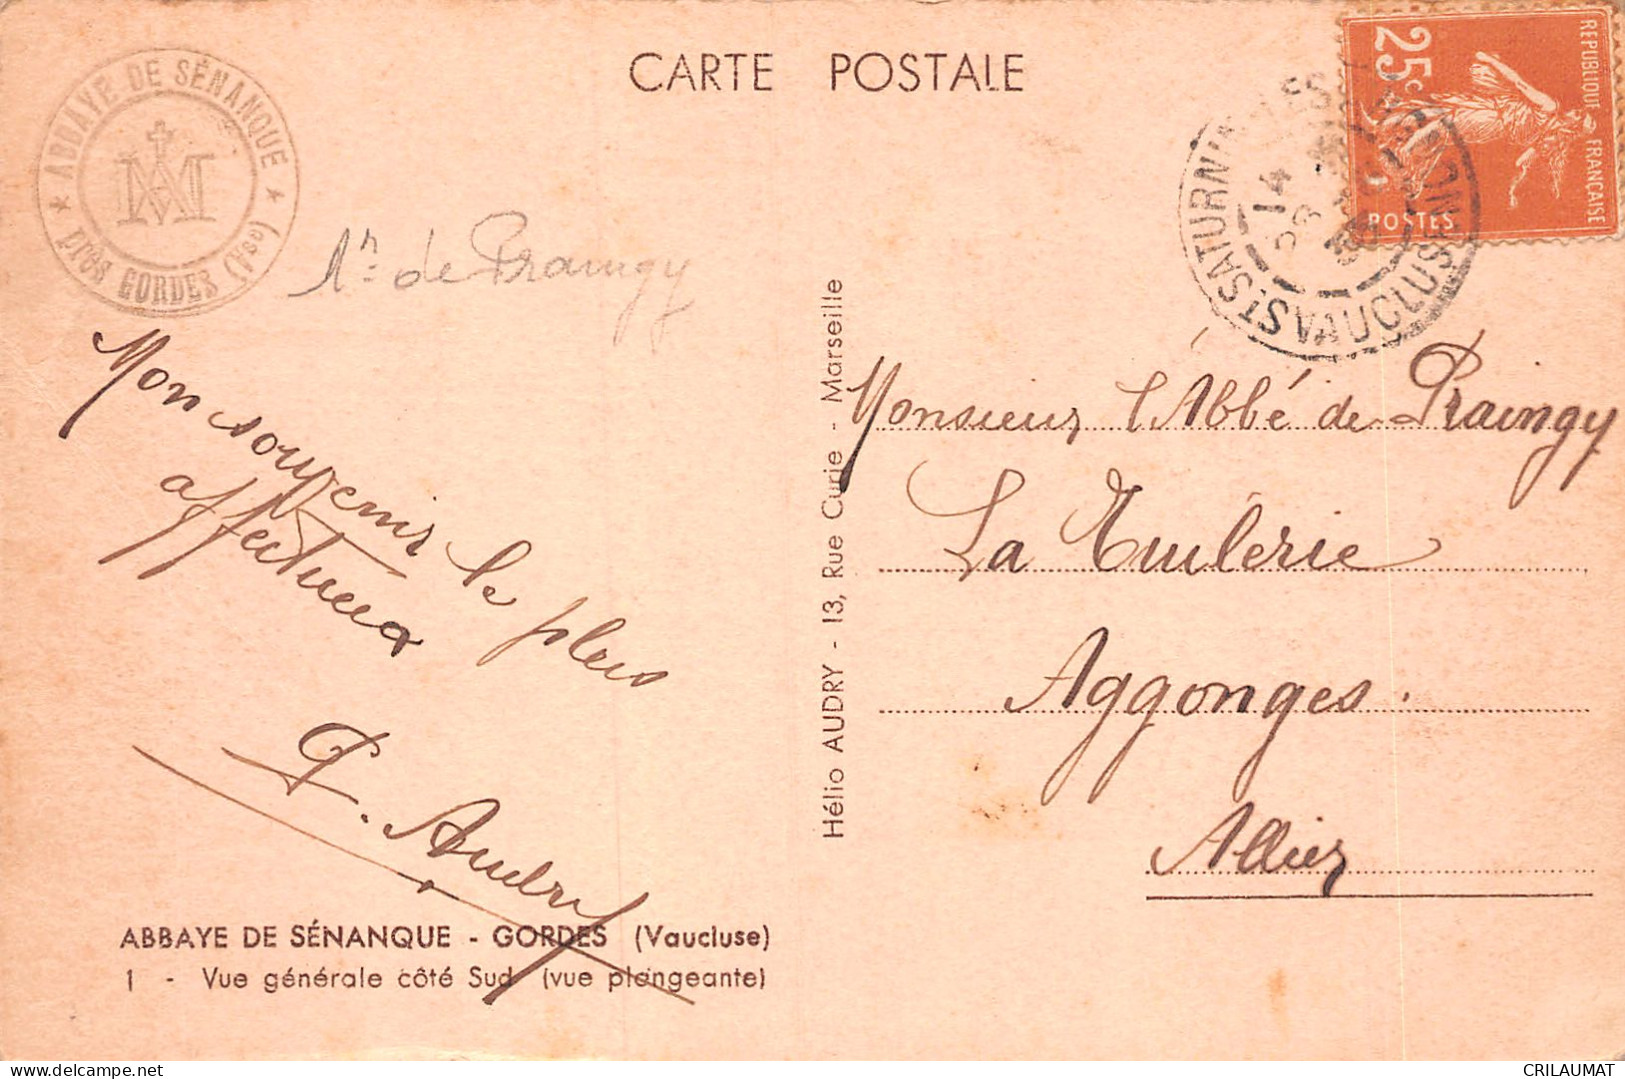 CARTE POSTALE
ABBAYE DE SÉNANQUE
près GORDES (Vse)
REPUBLIQUE FRANÇAISE
25c
POSTES
ST SATURNIN
14
VAUCLUSE
de Praingy
Mon souvenir le plus
affectueux
F. Audry
Monsieur l'Abbé de Praingy
La Tuilerie
Aggonges.
Allier
Hélio AUDRY - 13, Rue Curie - Marseille
ABBAYE DE SÉNANQUE - GORDES (Vaucluse)
1 - Vue générale côté Sud (vue plongeante)
CRILAUMAT